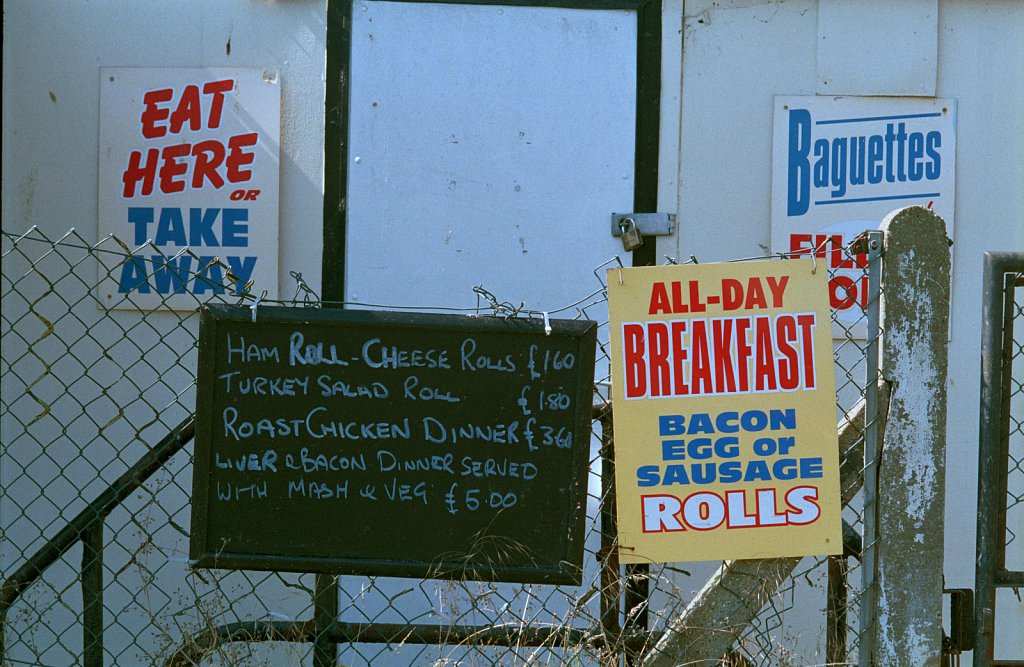 EAT
HERE
OR
TAKE
AWAY
Baguettes
HAM ROLL - CHEESE ROLLS £160
TURKEY SALAD ROLL £180
ROAST CHICKEN DINNER £360
LIVER & BACON DINNER SERVED
WITH MASH & VEG £5.00
ALL-DAY
BREAKFAST
BACON
EGG or
SAUSAGE
ROLLS